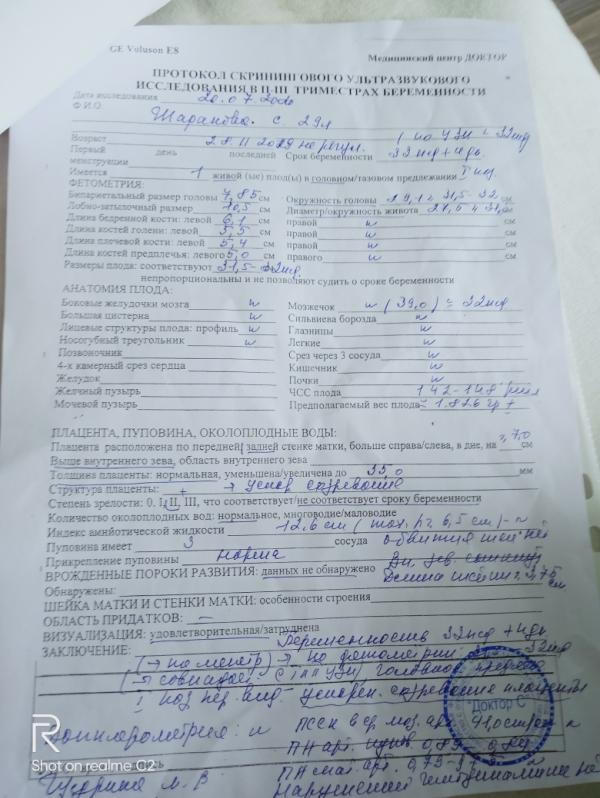 GE Voluson E8
Медицинский центр ДОКТОР
ПРОТОКОЛ СКРИНИНГОВОГО УЛЬТРАЗВУКОВОГО
ИССЛЕДОВАНИЯ В II-III ТРИМЕСТРАХ БЕРЕМЕННОСТИ
Дата исследования 20.07.2020
Ф.И.О. 29л
Возраст 28.11 не регул. (по УЗИ = 32нед
Первый день последней менструации Срок беременности 33нед+4дн.
Имеется 1 живой (ые) плод(ы) в головном/тазовом предлежании I поз.
ФЕТОМЕТРИЯ:
Бипариетальный размер головы 7,85 см Окружность головы 29,1= 31,5-32 см
Лобно-затылочный размер 10,5 см Диаметр/окружность живота 27,5 см
Длина бедренной кости: левой 6,1 см правой н см
Длина костей голени: левой 5,5 см правой н см
Длина плечевой кости: левой 5,4 см правой н см
Длина костей предплечья: левого 5,0 см правого н см
Размеры плода: соответствуют 31,5-32нед
непропорциональны и не позволяют судить о сроке беременности
АНАТОМИЯ ПЛОДА:
Боковые желудочки мозга н Мозжечок н (39,0) = 32нед
Большая цистерна н Сильвиева борозда н
Лицевые структуры плода: профиль н Глазницы н
Носогубный треугольник н Легкие н
Позвоночник Срез через 3 сосуда н
4-х камерный срез сердца Кишечник н
Желудок Почки н
Желчный пузырь ЧСС плода 142-148
Мочевой пузырь Предполагаемый вес плода = 1.826 гр +
ПЛАЦЕНТА, ПУПОВИНА, ОКОЛОПЛОДНЫЕ ВОДЫ:
Плацента расположена по передней/ задней стенке матки, больше справа/слева, в дне, на > 7,0 см
Выше внутреннего зева, область внутреннего зева
Толщина плаценты: нормальная, уменьшена/увеличена до 35,0 мм
Структура плаценты: + → ускор. созревание
Степень зрелости: 0. I, II, III, что соответствует/не соответствует сроку беременности
Количество околоплодных вод: нормальное, многоводие/маловодие
Индекс амниотической жидкости 12,6 см (max 6,5 см) - н
Пуповина имеет 3 сосуда обвития шеи нет
Прикрепление пуповины норма
ВРОЖДЕННЫЕ ПОРОКИ РАЗВИТИЯ: данных не обнаружено Длина шейки 3,75 см
Обнаружены:
ШЕЙКА МАТКИ И СТЕНКИ МАТКИ: особенности строения
ОБЛАСТЬ ПРИДАТКОВ: —
ВИЗУАЛИЗАЦИЯ: удовлетворительная/затруднена
ЗАКЛЮЧЕНИЕ: Беременность 33нед +4дн
(→ по менстр) → по фетометрии 32нед
(→ совпадает с I УЗИ) головное предлеж
I поз пер. вид. ускорен. созревание плаценты
Допплерометрия: н ПССК в ср. моз. арт.
ПИ арт. пуп. 0,89-0,84
ПИ мат. арт. 0,73-
Нарушений гемодинамики не
"Доктор С"
R
Shot on realme C2